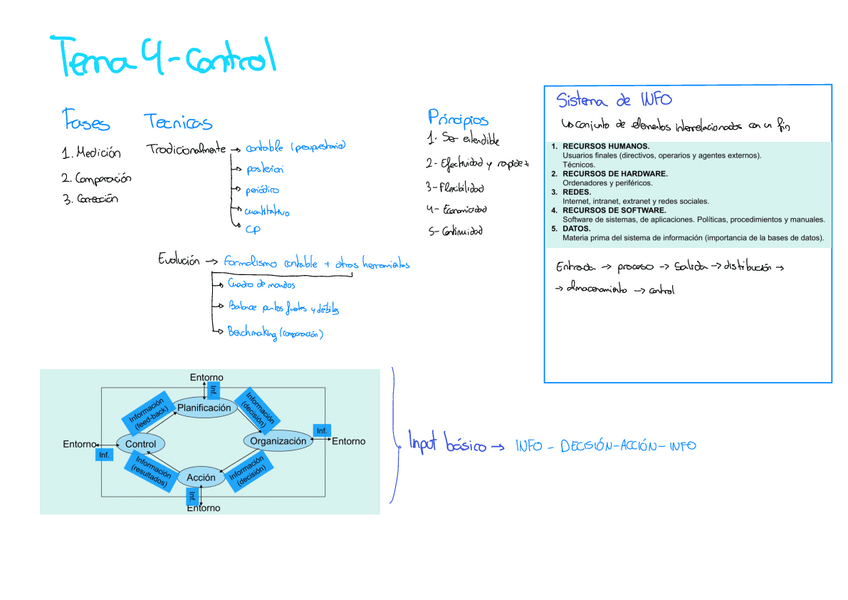 Tema 4 - Control
Fases
1. Medición
2. Comparación
3. Corrección
Tecnicas
Tradicionalmente → contable (presupuestaria)
→ posteriori
→ periódico
→ cuantitativo
→ CP
Evolución → Formalismo contable + otras herramientas
→ Cuadro de mandos
→ Balance puntos fuertes y débiles
→ Benchmaking (comparación)
Principios
1- Ser entendible
2- Efectividad y rapidez
3- Flexibilidad
4- Economicidad
5- Continuidad
Sistema de INFO
conjunto de elementos interrelacionados con un fin
1. RECURSOS HUMANOS.
Usuarios finales (directivos, operarios y agentes externos).
Técnicos.
2. RECURSOS DE HARDWARE.
Ordenadores y periféricos.
3. REDES.
Internet, intranet, extranet y redes sociales.
4. RECURSOS DE SOFTWARE.
Software de sistemas, de aplicaciones. Políticas, procedimientos y manuales.
5. DATOS.
Materia prima del sistema de información (importancia de la bases de datos).
Entrada → proceso → Salida → distribución →
→ almacenamiento → control
Entorno
Inf.
Planificación
Información
(feed-back)
Información
(decisión)
Entorno
Inf.
Control
Organización
Inf.
Entorno
Información
(resultados)
Información
(decisión)
Acción
Inf.
Entorno
Input básico → INFO - DECISIÓN - ACCIÓN - INFO